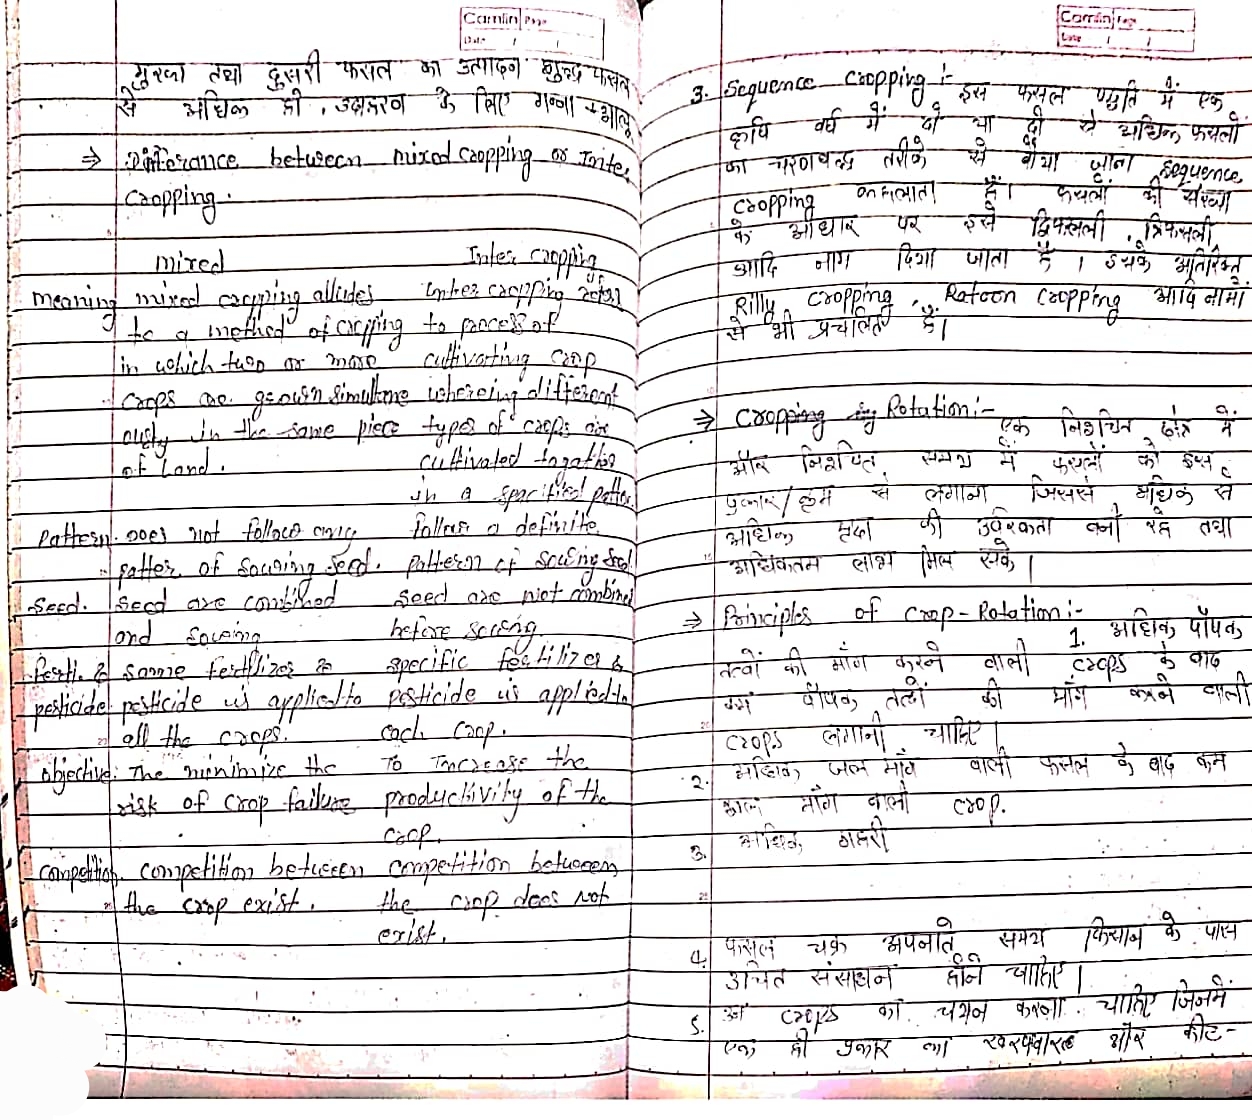 Camlin Page
Date / /
मुख्य तथा दुसरी फसल का उत्पादन शुद्ध फसल
से अधिक हो, उदाहरण के लिए गन्ना + आलू
⇒ Differance between mixed cropping or Inter
Cropping.
mixed Inter Cropping
meaning mixed cropping alludes Inter cropping refers
to a method of cropping to process of
in which two or more cultivating crop
crops are grown simultane whereing different
ously in the same piece types of crops are
of land. cultivated togather
in a specified patter
Pattern. Does not follow any follow a definite
patter of sowing seed. pattern of sowing seed
Seed. Seed are combined Seed are not combined
and sowing before sowing
ferti. & same fertilizer & specific fertilizer &
pesticide pesticide is applied to pesticide is applied to
all the crops. each crop.
objective: The minimize the To Increase the
risk of crop failure productivity of the
crop.
competition. competition between competition between
the crop exist. the crop does not
exist.
Camlin Page
Date / /
3. Sequence Cropping :- इस फसल पद्धति में एक
कृषि वर्ष में दो या दो से अधिक फसलों
का चरणबद्ध तरीके से बोया जाना Sequence
Cropping कहलाता है। फसलों की संख्या
के आधार पर इसे द्विफसली, त्रिफसली
आदि नाम दिया जाता है। इसके अतिरिक्त
Rilly Cropping, Ratoon Cropping आदि नामों
से भी प्रचलित हैं।
⇒ Cropping Rotation :- एक निश्चित क्षेत्र में
और निश्चित समय में फसलों को इस
प्रकार/क्रम से लगाना जिससे अधिक से
अधिक मृदा की उर्वरकता बनी रहे तथा
अधिकतम लाभ मिल सके।
⇒ Principles of Crop-Rotation :-
1. अधिक पोषक
तत्वों की माँग करने वाली crops के बाद
कम पोषक तत्वों की माँग करने वाली
crops लगानी चाहिए।
2. अधिक जल मांग वाली फसल के बाद कम
जल माँग वाली crop.
3. अधिक गहरी
4. फसल चक्र अपनाते समय किसान के पास
उचित संसाधन होने चाहिए।
5. उन crops का चयन करना चाहिए जिनमें
एक ही प्रकार का खरपतवार और कीट-